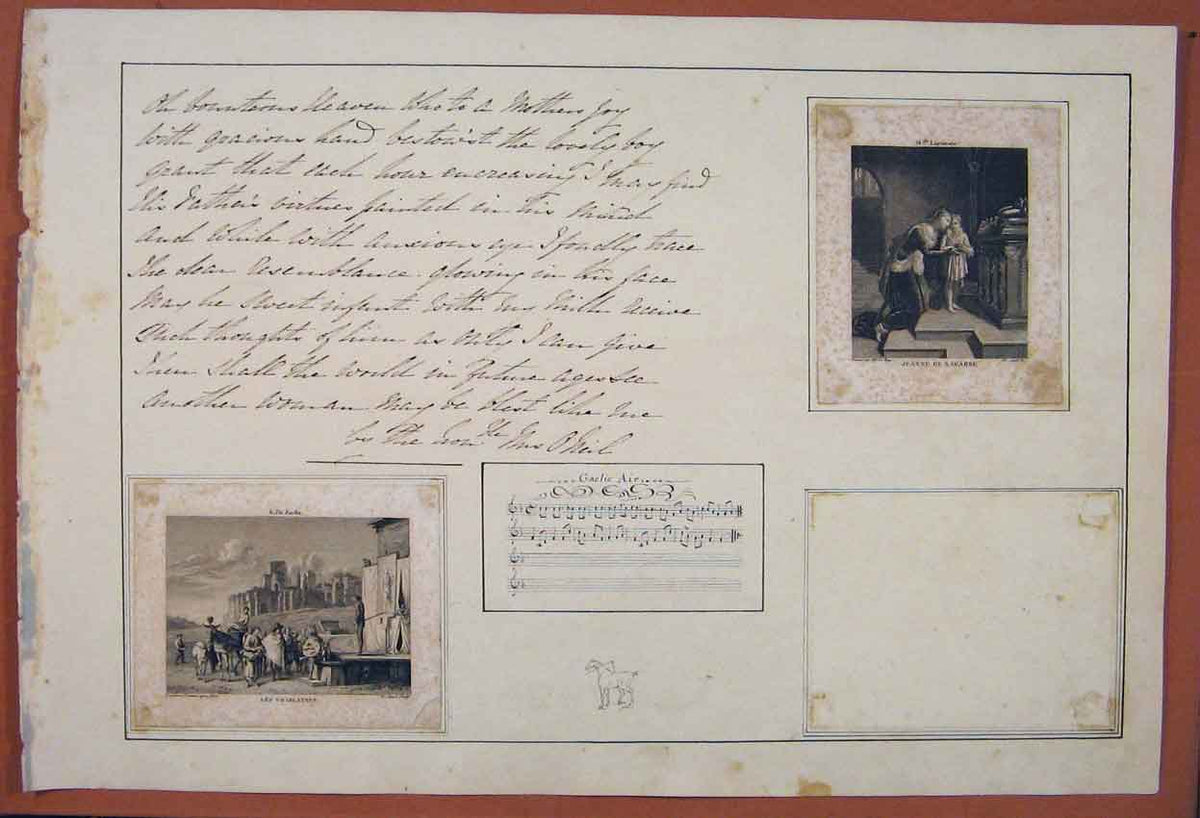 Oh bounteous Heaven who to a Mothers Joy
With gracious hand bestow'st the lovely boy
grant that each hour encreasing I may find
His Father's virtues painted in his mind
and while with anxious eye I fondly trace
The dear resemblance glowing in his face
May he sweet infant with my Milk receive
Such thoughts of him as only I can give
Then shall the world in Future ages see
another woman may be blest like me
by the Hon'ble Mrs O Neil
JEANNE DE NAVARRE
Gaelic Air
LES CHARLATANS